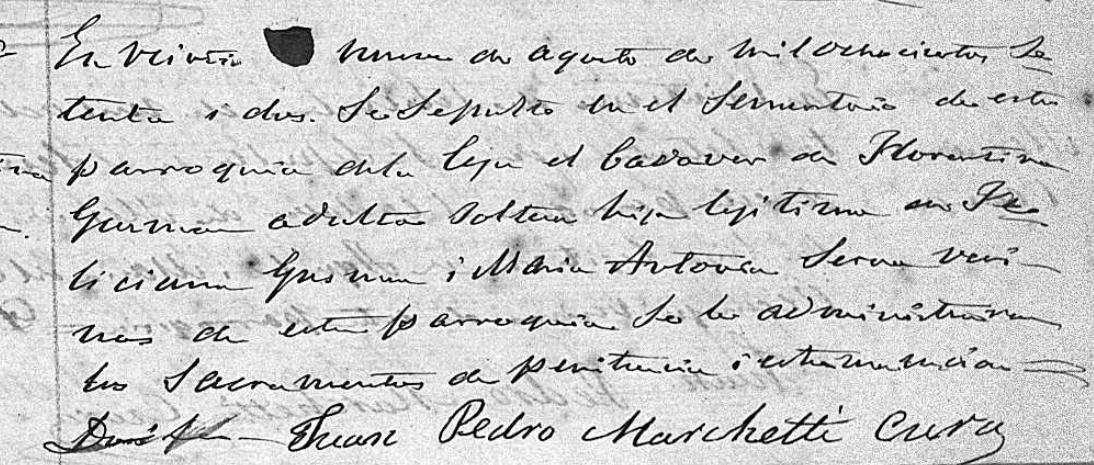 En veinti nueve de agosto de mil ochocientos se
tenta i dos. Se Sepulto en el Sementerio de esta
parroquia dela Ceja el Cadaver de Florentina
Gusman adulta soltera hija lejitima de Fe
liciano Gusman i Maria Antonia Serna veci
nos de esta parroquia se le administraron
los Sacramentos de penitencia i estremauncion
Doi fe Juan Pedro Marchetti Cura